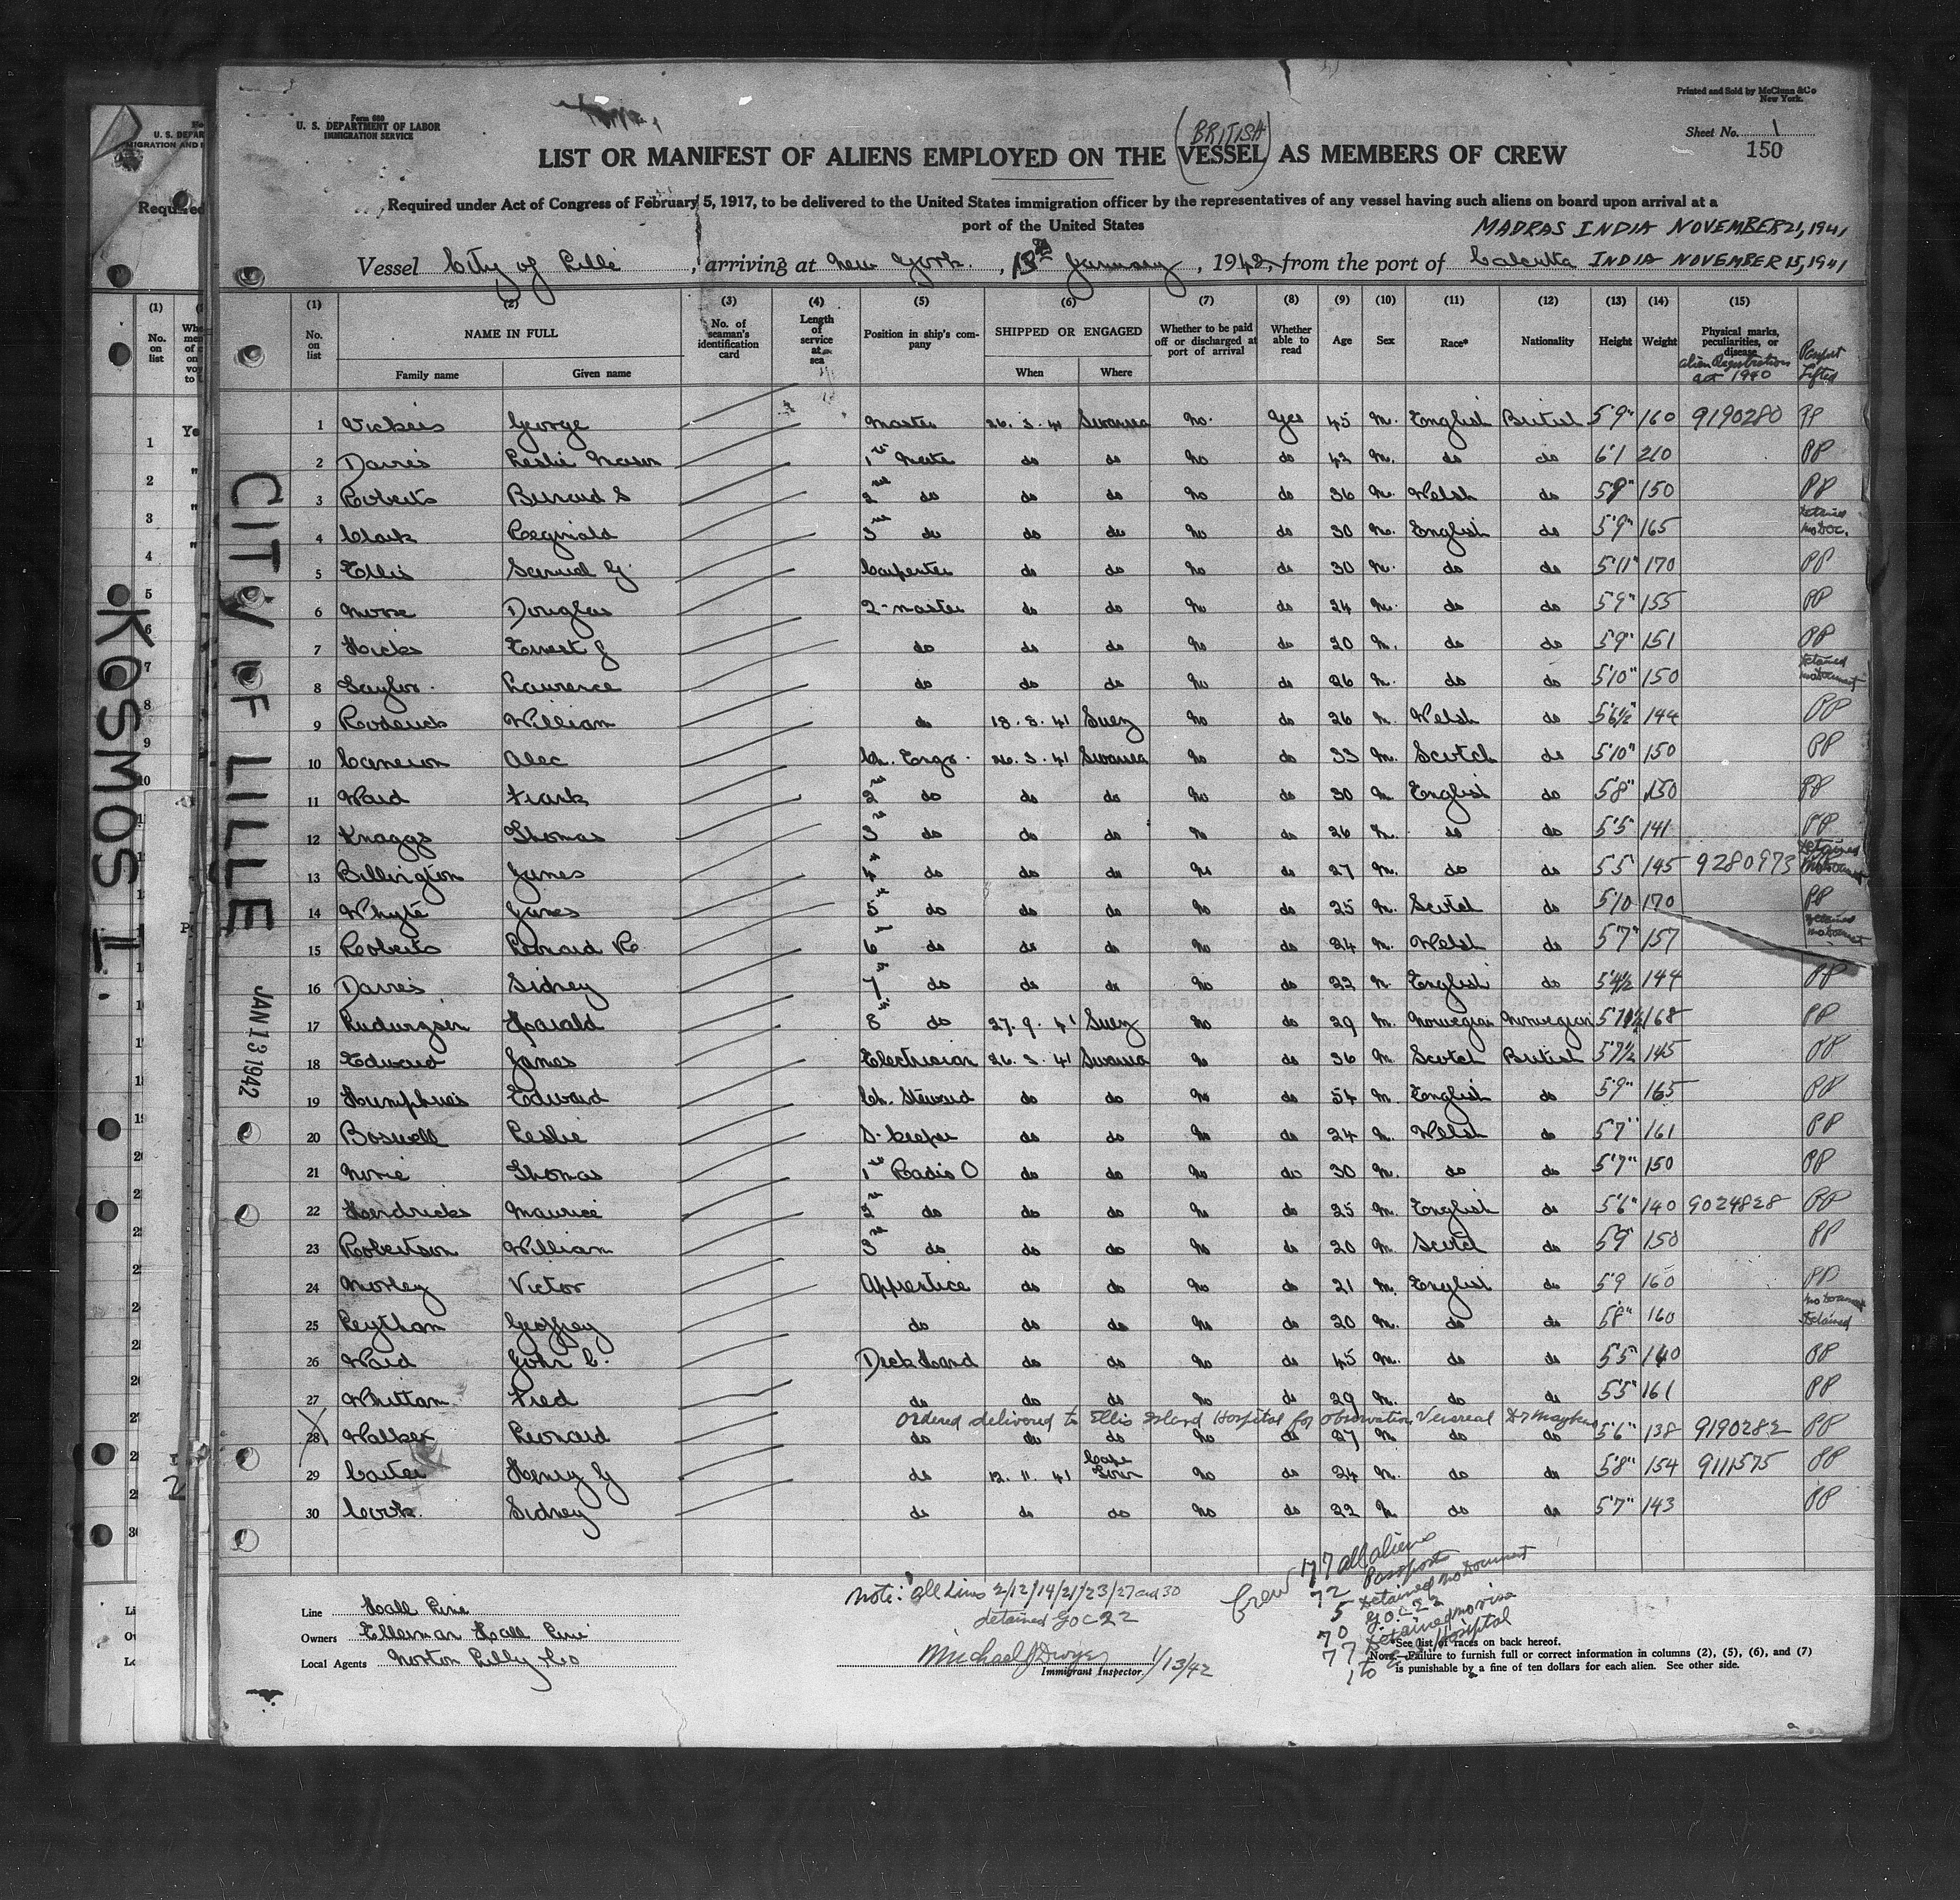 Form 680
U. S. DEPARTMENT OF LABOR
IMMIGRATION SERVICE
Printed and Sold by McClunn & Co
New York.
Sheet No. 1
150
(BRITISH)
LIST OR MANIFEST OF ALIENS EMPLOYED ON THE VESSEL AS MEMBERS OF CREW
Required under Act of Congress of February 5, 1917, to be delivered to the United States immigration officer by the representatives of any vessel having such aliens on board upon arrival at a
port of the United States
MADRAS INDIA NOVEMBER 21, 1941
Vessel City of Lille, arriving at New York, 13th January, 1942, from the port of Calcutta INDIA NOVEMBER 15, 1941
(1) (2) (3) (4) (5) (6) (7) (8) (9) (10) (11) (12) (13) (14) (15)
No. on list NAME IN FULL Family name Given name No. of seaman's identification card Length of service at sea Position in ship's company SHIPPED OR ENGAGED When Where Whether to be paid off or discharged at port of arrival Whether able to read Age Sex Race* Nationality Height Weight Physical marks, peculiarities, or disease Alien Registration Act 1940 Passport Lifted
1 Vickers George Master 26.3.41 Swansea No. Yes 45 M. English British 5'9" 160 9190280 PP
2 Davies Leslie Mason 1st Mate do do No do 42 M. do do 6'1 210 PP
3 Roberts Bernard S 2nd do do do No do 36 M. Welsh do 5'8" 150 PP
4 Clark Reginald 3rd do do do No do 30 M. English do 5'9" 165 Detained no Doc.
5 Ellis Samuel G. Carpenter do do No do 30 M. do do 5'11" 170 PP
6 Moore Douglas 2-master do do No do 24 M. do do 5'9" 155 PP
7 Hicks Ernest J do do do No do 20 M. do do 5'9" 151 PP
8 Taylor. Laurence do do do No do 26 M. do do 5'10" 150 Detained no document
9 Roderick William do 18.8.41 Suez No do 26 M. Welsh do 5'6½" 144 PP
10 Cameron Alec Ch. Engr. 26.3.41 Swansea No do 33 M. Scotch do 5'10" 150 PP
11 Ward Frank 2nd do do do No do 30 M English do 5'8" 150 PP
12 Knaggs Thomas 3rd do do do No do 26 M. do do 5'5 141 PP
13 Billington James 4th do do do No do 27 M. do do 5'5 145 9280973 Detained no document
14 Whyte James 5th do do do No do 25 M. Scotch do 5'10 170 PP
15 Roberts Leonard R 6th do do do No do 24 M. Welsh do 5'7" 157 Detained no document
16 Davies Sidney 7th do do do No do 22 M English do 5'4½ 144 PP
17 Ludwigsen Harald 8th do 27.9.41 Suez No do 29 M. Norwegian Norwegian 168 PP
18 Edward James Electrician 26.3.41 Swansea No do 36 M Scotch British 5'7½ 145 PP
19 Humphries Edward Ch. Steward do do No do 54 M. English do 5'9" 165 PP
20 Boswell Leslie S-keeper do do No do 24 M. Welsh do 5'7" 161 PP
21 Thomas 1st Radio O do do No do 30 M. do do 5'7" 150 PP
22 Hendricks Maurice 2nd do do do No do 25 M. English do 5'6" 140 9024828 PP
23 Robertson William 3rd do do do No do 20 M Scotch do 5'9" 150 PP
24 Morley Victor Apprentice do do No do 21 M. English do 5'9 160 PP
25 Leytham Geoffrey do do do No do 20 M. do do 5'8" 160 no document Detained
26 Ward John C. Deck Hand do do No do 45 M. do do 5'5 140 PP
27 Whittam Fred do do do No do 29 M. do do 5'5" 161 PP
Ordered delivered to Ellis Island Hospital for observation Venereal Dr
28 Walker Leonard do do do No do 27 M do do 5'6" 138 9190282 PP
29 Carter Henry G do 12.11.41 Cape Town No do 24 M. do do 5'8" 154 9111575 PP
30 Cook. Sidney do do do No do 22 M do do 5'7" 143 PP
Note: All lines 2/12/14/21/23/27 and 30
detained GOC 22
Michael J Dwyer 1/13/42
Immigrant Inspector.
Crew 77 all aliens
72 Passports
5 Detained no document
70 G.O.C 22
77 Detained no visa
1 to Hospital
Line Hall Line
Owners Ellerman Hall Line
Local Agents Norton Lilly & Co
*See list of races on back hereof.
NOTE.—Failure to furnish full or correct information in columns (2), (5), (6), and (7)
is punishable by a fine of ten dollars for each alien. See other side.
CITY OF LILLE
JAN 13 1942
KOSMOS II